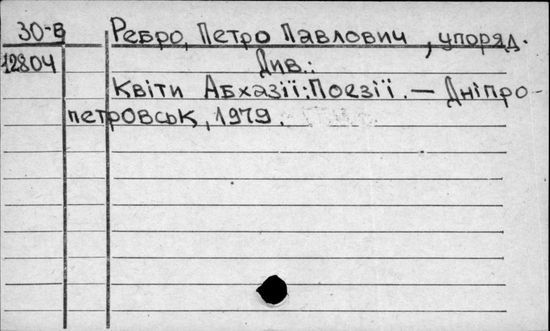 30-В Ребро, Петро Павлович, упоряд.
12804 Див.:
Квіти Абхазії: Поезії. — Дніпро-
петровськ, 1979.